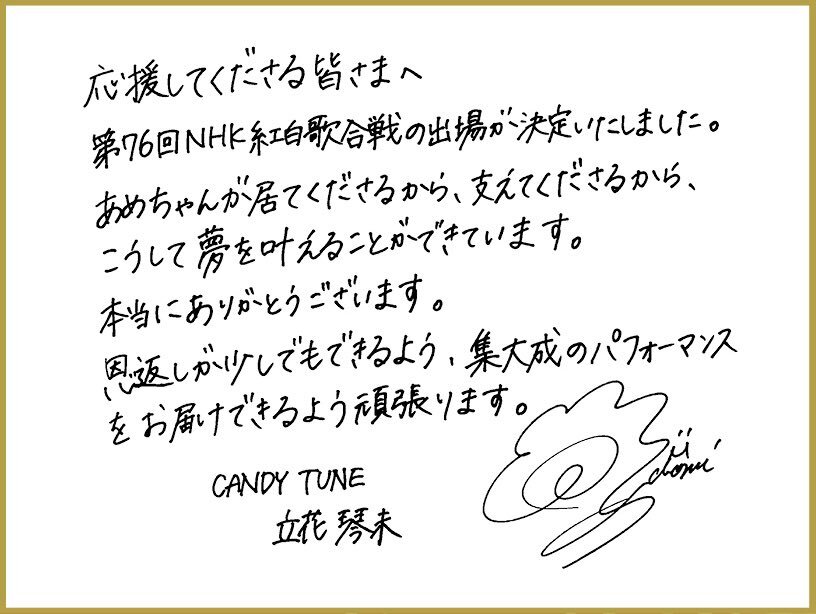 応援してくださる皆さまへ
第76回NHK紅白歌合戦の出場が決定いたしました。
あめちゃんが居てくださるから、支えてくださるから、
こうして夢を叶えることができています。
本当にありがとうございます。
恩返しが少しでもできるよう、集大成のパフォーマンス
をお届けできるよう頑張ります。
CANDY TUNE
立花琴未